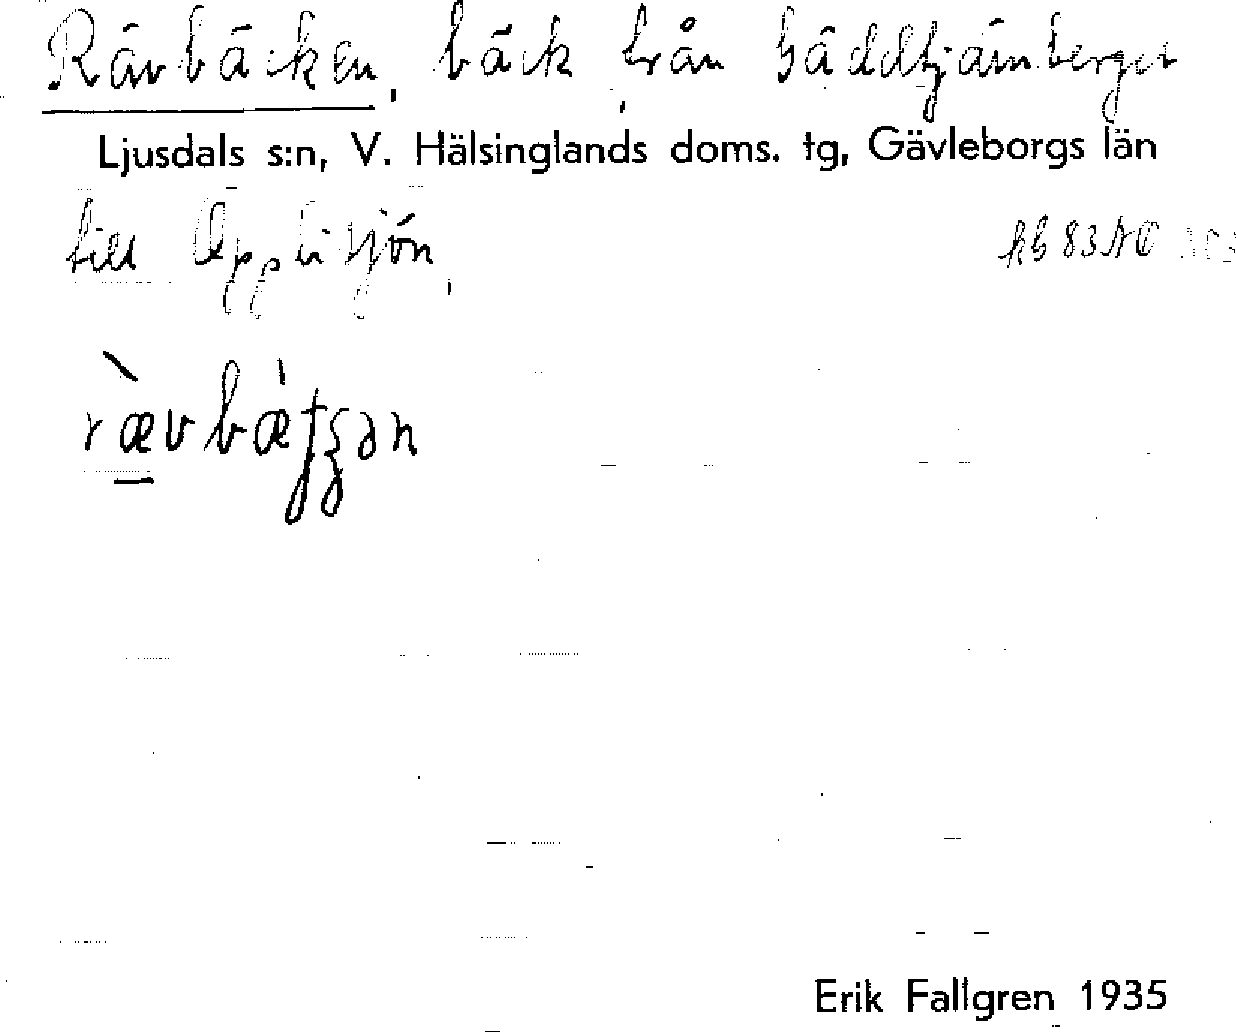 Rävbäcken, bäck från Gäddtjärnberget
Ljusdals s:n, V. Hälsinglands doms. tg, Gävleborgs län
till Öpplisjön,
rævbætʂən
Erik Fallgren 1935